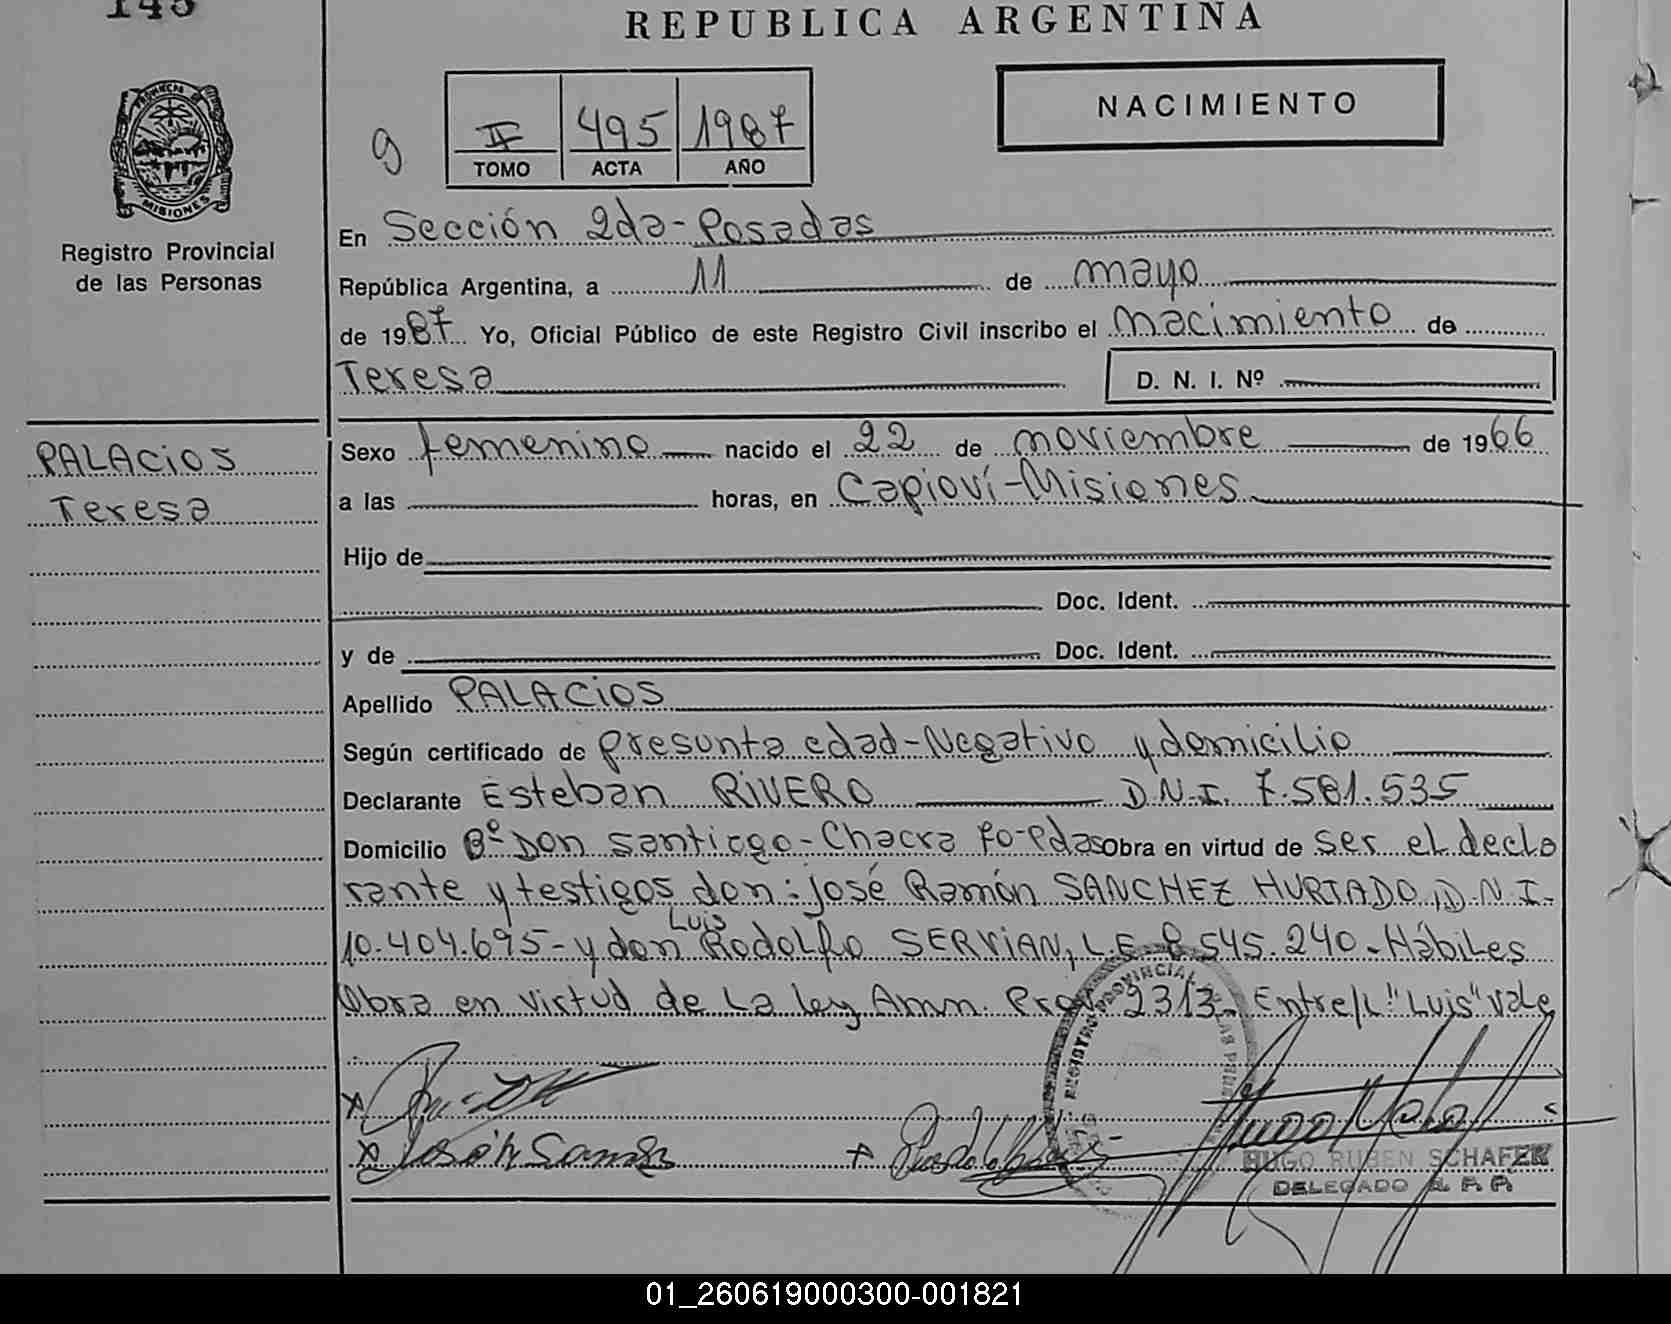 145
REPUBLICA ARGENTINA
PROVINCIA DE
MISIONES
Registro Provincial
de las Personas
9
II 495 1987
TOMO ACTA AÑO
NACIMIENTO
En Sección 2da-Posadas
República Argentina, a 11 de mayo
de 1987 Yo, Oficial Público de este Registro Civil inscribo el nacimiento de
Teresa D. N. I. Nº
PALACIOS
Teresa
Sexo femenino nacido el 22 de noviembre de 1966
a las horas, en Capioví-Misiones
Hijo de
Doc. Ident.
y de Doc. Ident.
Apellido PALACIOS
Según certificado de presunta edad-Negativo y domicilio
Declarante Esteban RIVERO D.N.I. 7.581.535
Domicilio Bº Don Santiago-Chacra 70-Pdas Obra en virtud de ser el decla
rante y testigos don: José Ramón SANCHEZ HURTADO, D.N.I.
10.404.695- y don Luis Rodolfo SERVIAN, L.E. 8.545.240- Hábiles
Obra en virtud de La ley Amn. Prov. 2313- Entre/L "Luis" vale
REGISTRO PROVINCIAL
HUGO RUBEN SCHAFER
DELEGADO R. P. P.
01_260619000300-001821